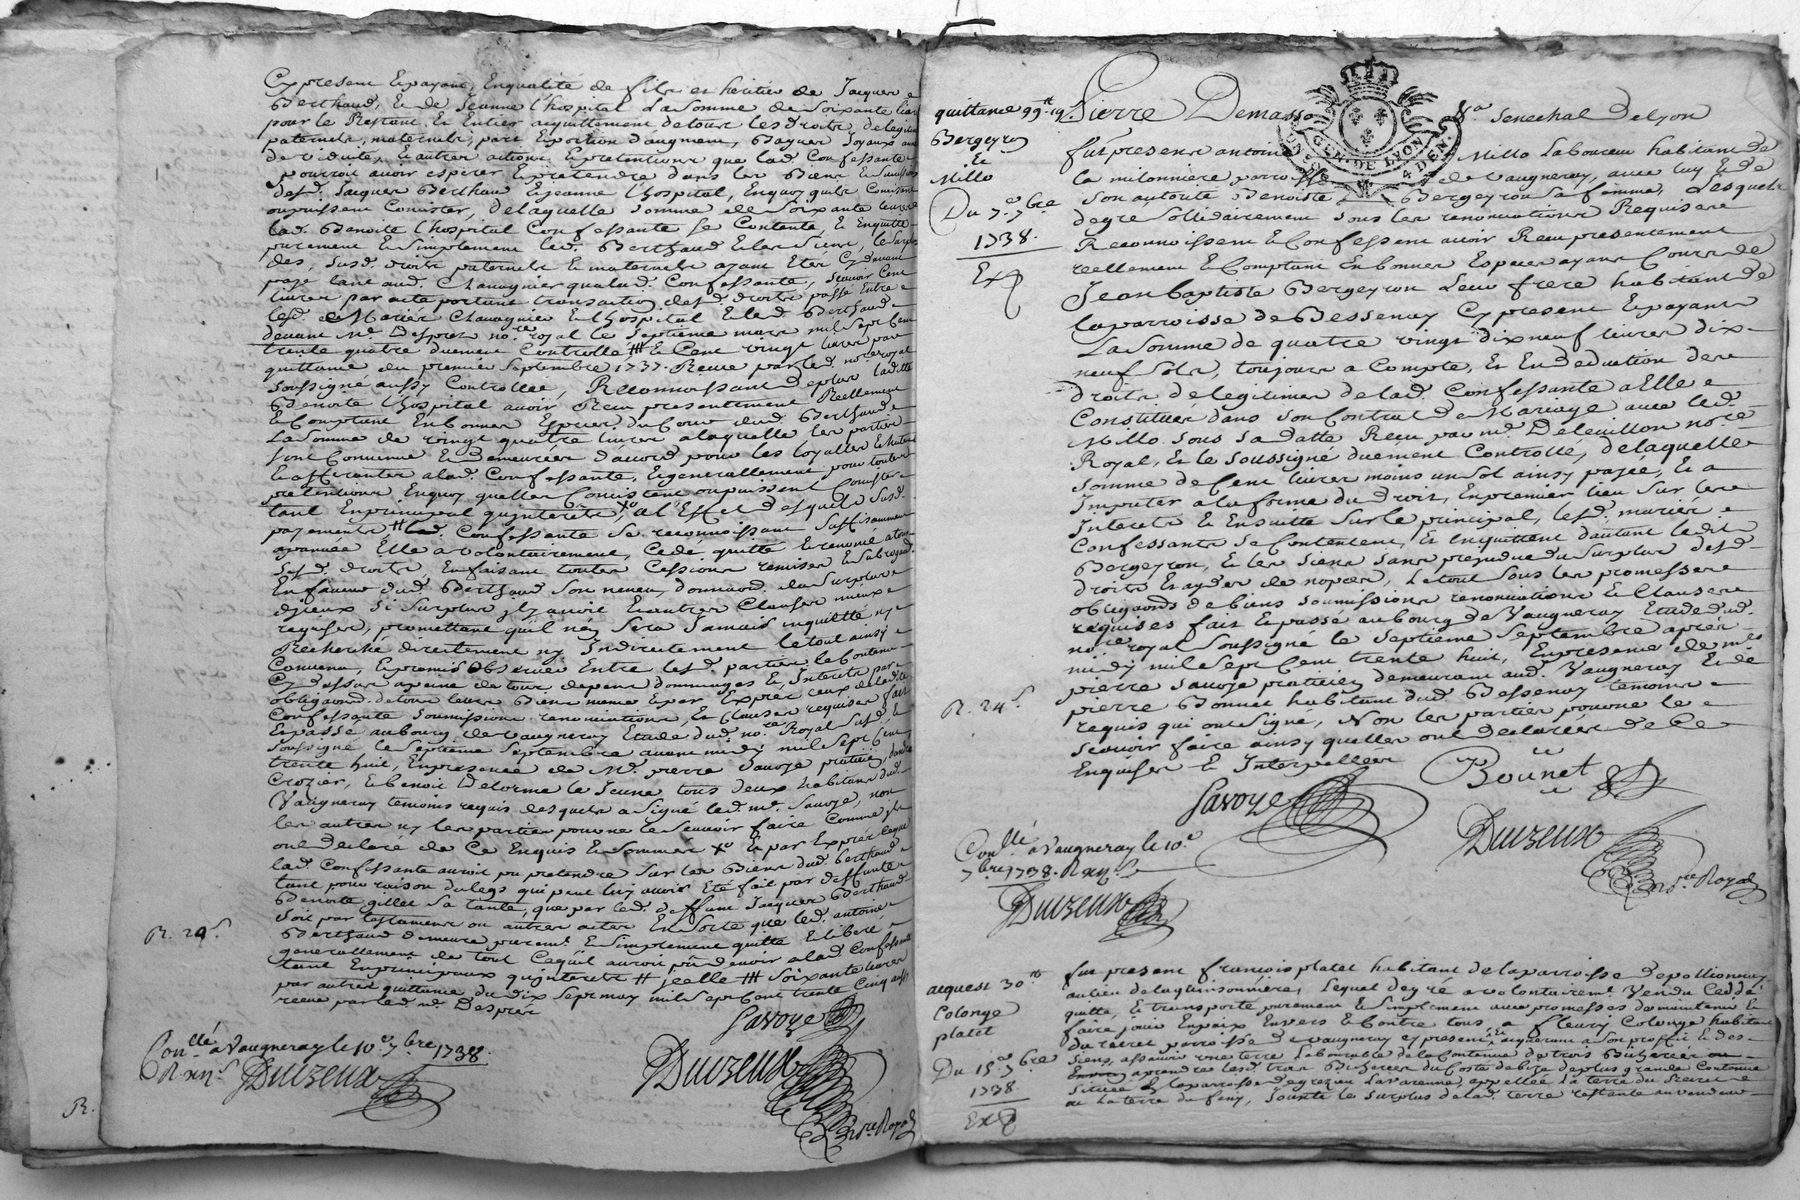 Cy present Et payant, En qualité de fils et heritier de Jacques
Berthaud, Et de Jeanne l'hospital La Somme de Soixante livres
pour le Restant Et Entier acquittement de tous les droits de legitime
paternels, maternels, part Et portion d'augment, Bagues Joyaux
de viduité, Et autres actions Et pretentions que lad. Confessante
pourroit avoir esperer Et pretendre dans les Biens
desd. Jacques Berthaud Et Jeanne l'hospital, En quoy qu'ils Consistent
ou puissent Consister, de laquelle Somme de Soixante livres
lad. Benoite l'hospital Confessante Se Contente, Et En quitte
purement Et Simplement led. Berthaud Et les Siens, le Surplus
des, susd. droits paternels Et maternels ayant Eté Cy devant
payé tant aud. Chavagnier qu'a lad. Confessante, Scavoir Cent
livres par acte portant transaction desd. droits passé Entre
lesd. Mariés Chavagnier Et l'hospital Et led. Berthaud
devant Me. Desprez no.re royal le Septieme mars mil Sept Cent
trente quatre duement Controllé # Et Cent vingt livres par
quittance du premier Septembre 1737. Receue par led. no.re royal
Soussigné aussy Controllée, Reconnoissant de plus laditte
Benoite l'hospital avoir Receu presentement Reellement
Et Comptant En bonnes Especes du Cours dud. Berthaud
La Somme de vingt quatre livres a laquelle les parties
Sont Convenues Et demeurées d'accord pour les loyaltes
afferantes a lad. Confessante, Et generallement pour toutes
pretentions En quoy quelles Consistent ou puissent Consister
tant En principal qu'interêts, al'Effet desquels Susd.
payements # lad. Confessante Se reconnoissant Suffisamment
avancée Elle a volontairement, Cedé quitté Et renoncé a tous
Susd. droits En faisant toutes Cessions remises Et Subrogations
En faveur dud. Berthaud Son neveu, donnaond. du Surplus
d'iceux Si Surplus y avoit Et autres Clauses mieux
requises, promettant qu'il n'en Sera Jamais inquietté ny
Recherché directement ny Indirectement Le tout ainsy
Convenu, Et promis observer Entre lesd. parties le Contenu
Cy dessus a peine de tous depens dommages Et Interets par
obligaond. de tous leurs Biens meme Et par Exprés ceux de lad.
Confessante Soumissions renonciations, Et Clauses requises fait
Et passé au bourg de Vaugneray Etude dud. no.re Royal Susd. Et
Soussigné le Septieme Septembre avant midy mil Sept Cent
trente huit, En presence de Me. pierre Savoye praticien,
Crozier, Et benoit Delorme le Jeune tous deux habitans dud.
Vaugneray temoins requis desquels a Signé led. me. Savoye, non
les autres ny les parties pour ne le Scavoir faire Comme ils
ont declaré de Ce Enquis Et Sommés X Et par Exprés Ceque
lad. Confessante auroit pu pretendre Sur les Biens dud. berthaud
tant pour raison du legs qui peut luy avoir Eté fait par deffunte
Benoite gillet Sa tante, que par led. deffunt Jacques Berthaud
Soit par testament ou autres actes En Sorte que led. antoine
Berthaud demeure purem.t Et Simplement quitte Et liberé
generallement de tout Cequ'il auroit pu devoir a lad. Confessante
tant En principaux qu'interets # icelle # Soixante livres
par autre quittance du dix Sept may mil Sept Cent trente Cinq aussy
receue par led. me. Desprez
Savoye
R. 24s.
Con.llé a Vaugneray le 10e 7bre 1738.
R xijs. Duizeux
Duizeux
no.re Royal
R.
Pierre Demasso Sa. Senechal de Lyon
GEN. DE LYON
4 DEN.
quittance 99tt 19s.
Bergeyron
Et
Millo
Du 7e 7bre
1738.
Exp
fut present antoine Millo Laboureur habitant de
la milonniere parroisse de Vaugneray, avec luy Et de
Son autorité Benoiste Bergeyron Sa femme, Lesquels
de gré Sollidairement Sous les renonciations Requises
Reconnoissent Et Confessent avoir Receu presentement
reellement Et Comptant En bonnes Especes ayans Cours de
Jean baptiste Bergeyron Leur frere habitant de
la parroisse de Bessenay Cy present Et payant
La Somme de quatre vingt dix neuf livres dix
neuf Sols, toujours a Compte, Et En deduction des
droits de legitimes de lad. Confessante a Elle
Constitués dans Son Contrat de Mariage avec led.
Millo Sous Sa datte Receu par me. Deleuillon no.re
Royal, Et le Soussigné duement Controllé, de laquelle
Somme de Cent livres moins un Sol ainsy payée, Et a
Imputer a la forme du droit, En premier lieu Sur les
Interets Et Ensuitte Sur le principal, lesd. mariés
Confessants Se Contentent, Et En quittent d'autant ledit
Bergeyron, Et les Siens Sans prejudice du Surplus desd.
droits, Et ayder de noveor, Le tout Sous les promesses
obligaonds de biens Soumissions renonciations Et Clauses
requises fait Et passé au bourg de Vaugneray Etude dud.
no.re royal Soussigné le Septieme Septembre aprés
midy mil Sept Cent trente huit, En presence de me.
pierre Savoye praticien demeurant aud. Vaugneray Et de
pierre Bonnet habitant dud. Bessenay temoins
requis qui ont Signé, Non les parties pour ne le
Scavoir faire ainsy quelles ont declarées de Ce
Enquises Et Interpellées
R. 24s.
Bounet
Savoye
Duizeux
no.re Royal
Con.llé a Vaugneray le 10.e
7bre 1738. R xijs.
Duizeux
acquest 30tt
Colonge
platet
Du 15e 7bre
1738
Exp
fut present francois platet habitant de la parroisse de pollionnay
au lieu de la guinsonniere, Lequel de gré a volontairem.t Vendu Ceddé
quitté, Et transporté purement Et Simplement avec promesses de maintenir Et
faire jouir En paix Envers Et Contre tous, a fleury Colonge habitant
du recret parroisse de Vaugneray cy present, Et acquerant a Son proffit Et des
Siens, assavoir une terre Labourable de la Contenue de trois Bicherées ou
Environ a prendre lesd. trois Bicherées du Costé de bize de plus grande Contenue
Située En la parroisse de grezieu La Varenne, appellée La terre du Recret
ou La terre du feny, Jouxte le Surplus de lad. terre restante au vendeur